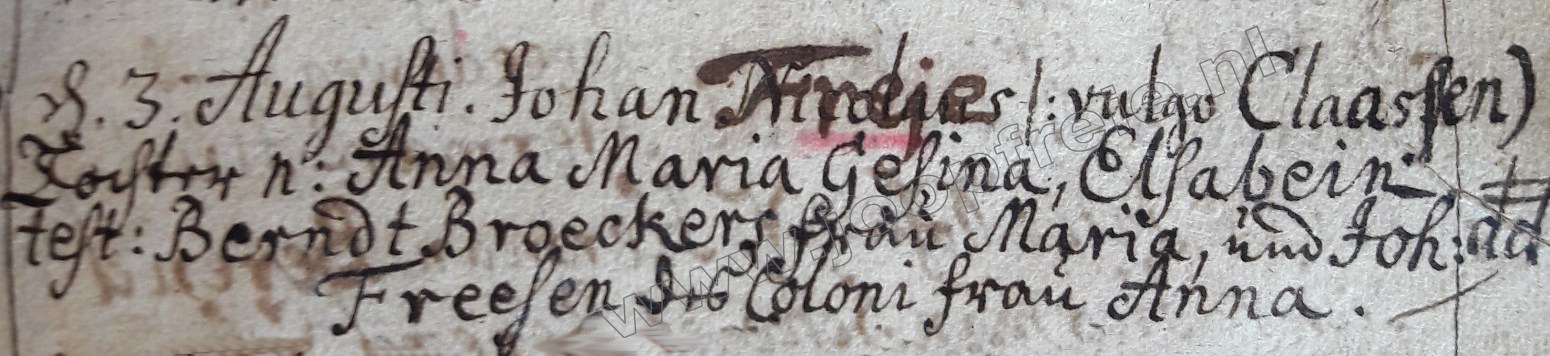 d. 3. Augusti. Johan |: vulgo Claassen)
Tochter n: Anna Maria Gesina, Elsabein
test: Berndt Broeckers frau Maria, und Joh: ad
Freesen des Coloni frau Anna.